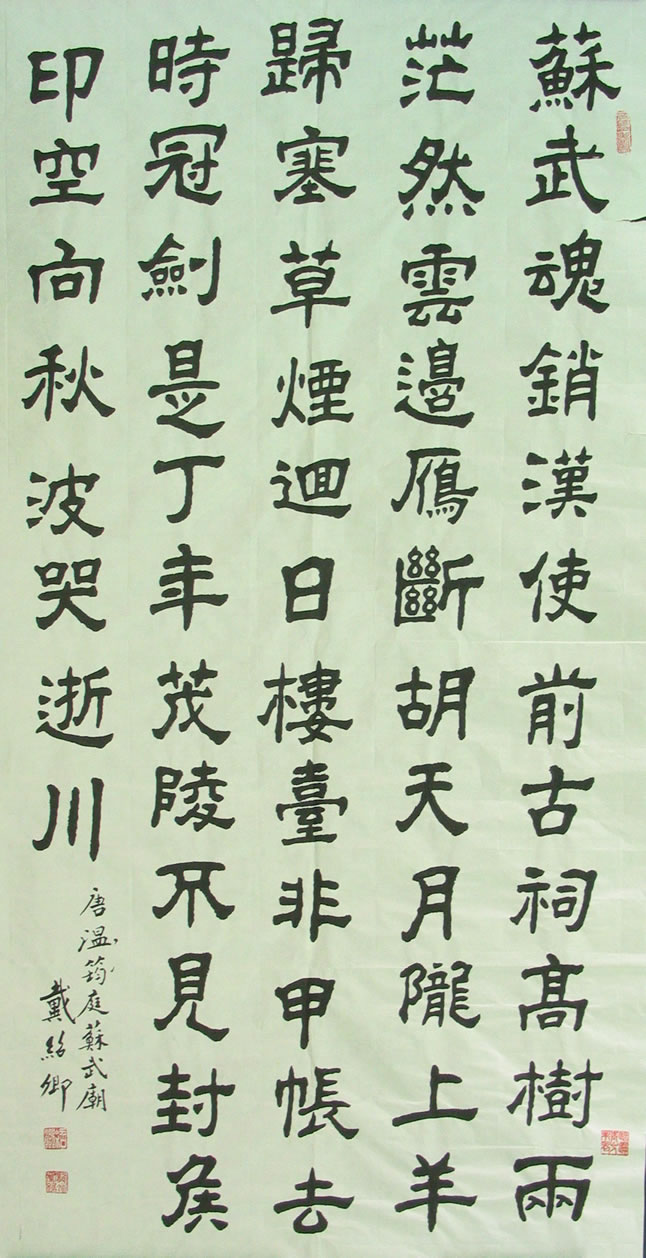 蘇武魂銷漢使前古祠高樹兩
茫然雲邉雁斷胡天月隴上羊
歸塞草煙迴日樓臺非甲帳去
時冠劍是丁年茂陵不見封侯
印空向秋波哭逝川
唐溫筠庭蘇武廟
戴紹卿